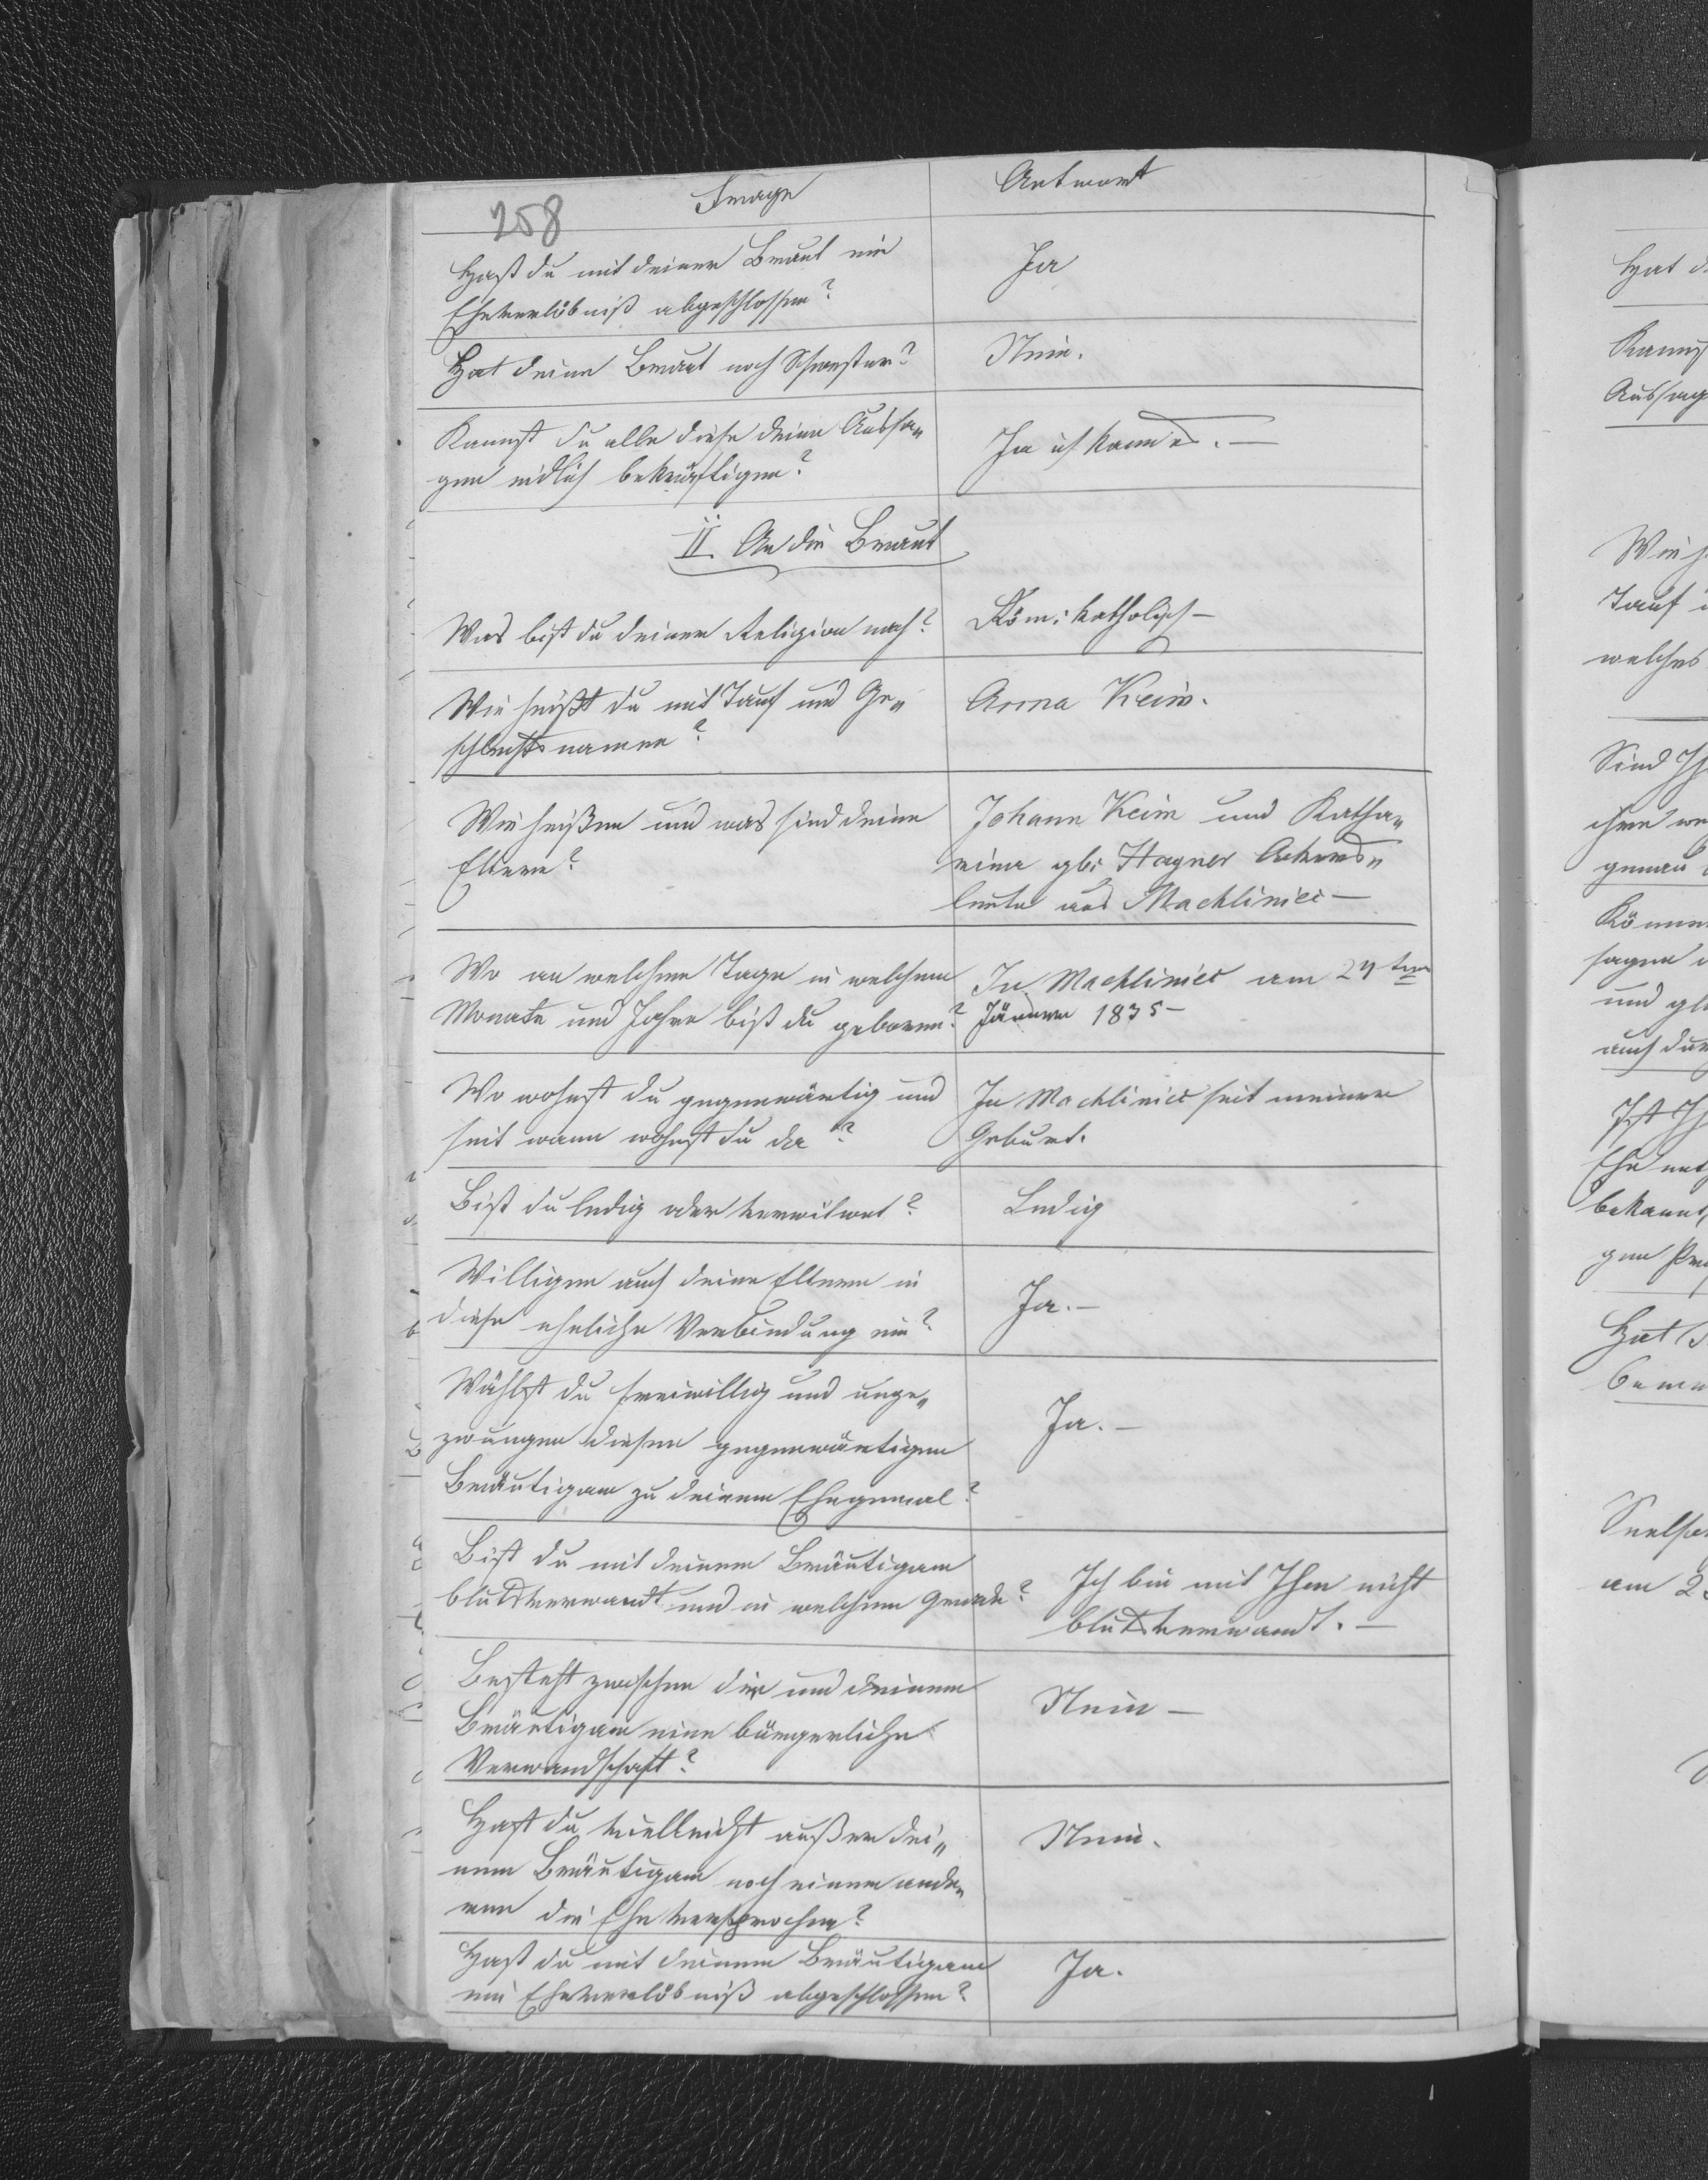 258
Frage
Antwort
Hast du mit deiner Braut ein
Eheverlöbniß abgeschlossen?
Ja
Hat deine Braut noch Schwester?
Nein.
Kannst du alle diese deine Aussa„
gen eidlich bekräftigen?
Ja ich kann es. —
II. An die Braut
Was bist du deiner Religion nach?
Röm: katholisch —
Wie heißt du mit Tauf und Ge„
schlechtsnamen?
Anna Keim.
Wie heißen und was sind deine
Eltern?
Johann Keim und Katha„
rina gb: Hagner Ackers„
leute aus Machliniec —
Wo an welchem Tage in welchem
Monate und Jahre bist du geboren?
In Machliniec am 27ten
Jänner 1835 —
Wo wohnst du gegenwärtig und
seit wann wohnst du da?
In Machliniec seit meiner
Geburt.
Bist du ledig oder verwitwet?
Ledig
Willigen auch deine Eltern in
diese eheliche Verbindung ein?
Ja. —
Wählst du freiwillig und unge„
zwungen diesen gegenwärtigen
Bräutigam zu deinem Ehegemal?
Ja. —
Bist du mit deinem Bräutigam
blutsverwandt und in welchem Grade?
Ich bin mit Ihm nicht
blutsverwandt. —
Besteht zwischen dir und deinem
Bräutigam eine bürgerliche
Verwandschaft?
Nein —
Hast du vielleicht außer dei„
nem Bräutigam noch einem ande„
ren die Ehe versprochen?
Nein.
Hast du mit deinem Bräutigam
ein Eheverlöbniß abgeschlossen?
Ja.
Hat
Aussag
Tauf
welches
Sind
genau
sagen
und
auch
bekannt
gen
Hat
am